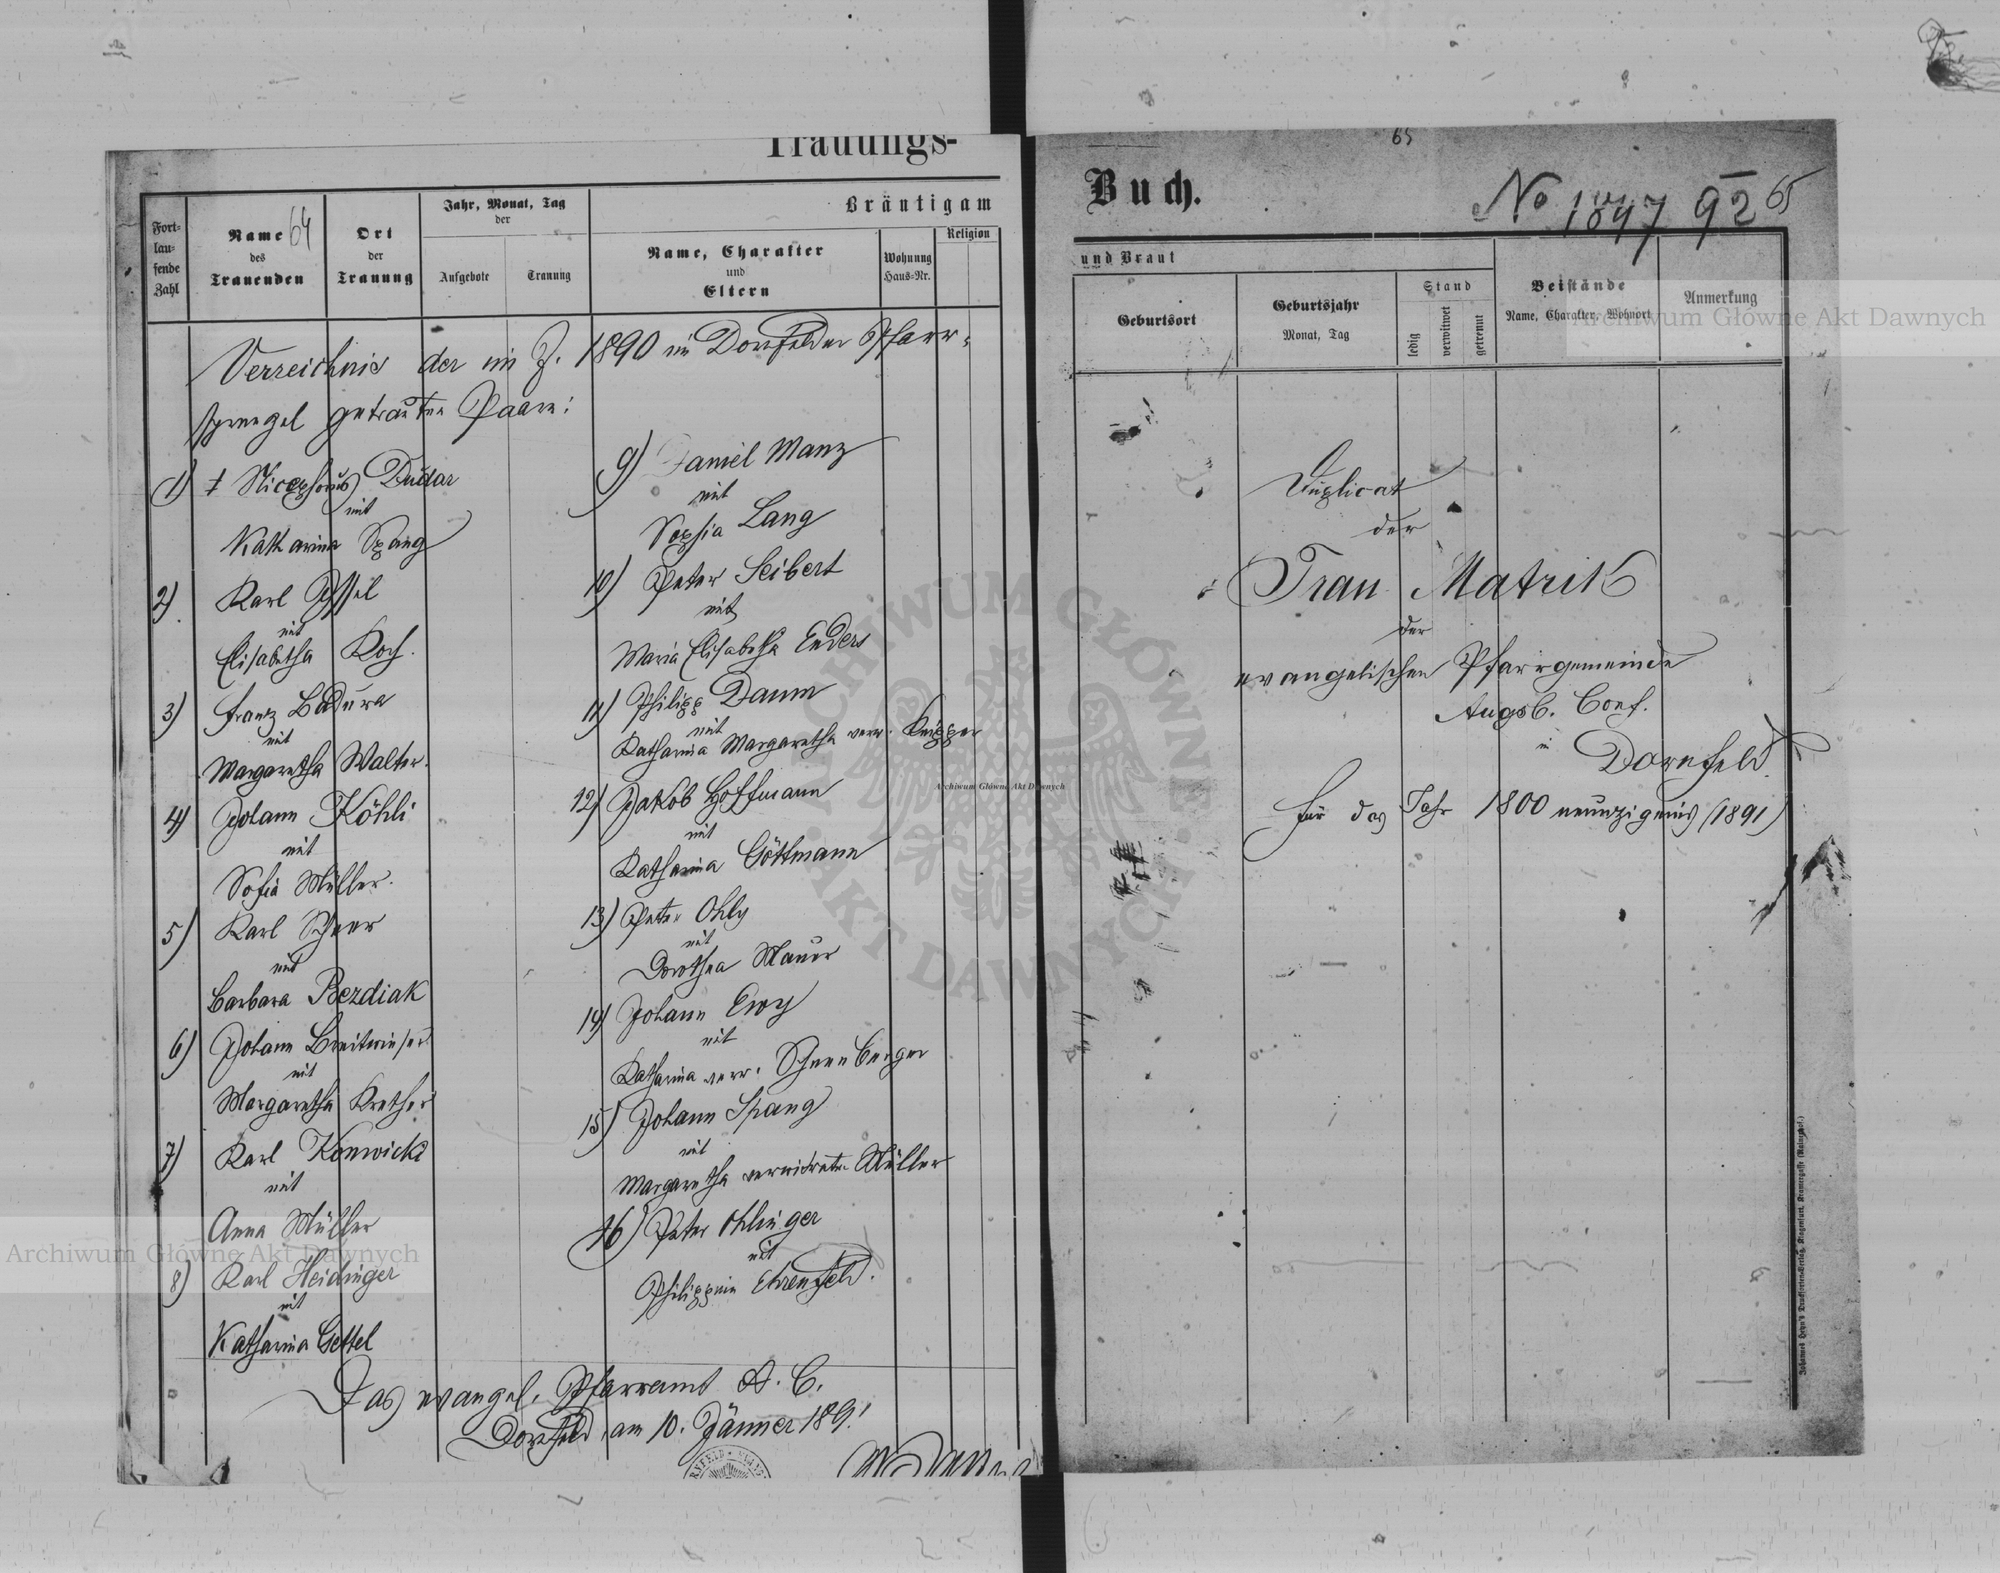 Trauungs-
64
Fort-
lau-
fende
Zahl
Name
des
Trauenden
Ort
der
Trauung
Jahr, Monat, Tag
der
Aufgebote
Trauung
Bräutigam
Name, Charakter
und
Eltern
Wohnung
Haus-Nr.
Religion
Verzeichnis der im J. 1890 im Dornfelder Pfarr-
sprengel getrauten Paare:
1) ‡ Nicephorus Dudar
mit
Katharina Spang
2) Karl Issel
mit
Elisabetha Koch.
3) Franz Badura
mit
Margaretha Walter.
4) Johann Köhli
mit
Sofia Müller.
5) Karl Scheer
mit
Barbara Bezdiak
6) Johann Breitwieser
mit
Margaretha Krether
7) Karl Konwicki
mit
Anna Müller
8) Karl Heidinger
mit
Katharina Gettel
9) Daniel Manz
mit
Sophia Lang
10) Peter Seibert
mit
Maria Elisabetha Enders
11) Philipp Daum
mit
Katharina Margaretha verw. Knipper
12) Jakob Hoffmann
mit
Katharina Göttmann
13) Peter Ohly
mit
Dorothea Maurer
14) Johann Ewy
mit
Katharina verw. Schneeberger
15) Johann Spang
mit
Margaretha verwidwete Müller
16) Peter Ohlinger
mit
Philippine Ehrenfeld.
Das evangel. Pfarramt A. C.
Dornfeld, am 10. Jänner 1891
65
Buch.
No 1847 92 65
und Braut
Geburtsort
Geburtsjahr
Monat, Tag
Stand
ledig
verwitwet
getrennt
Beistände
Name, Charakter, Wohnort
Anmerkung
Duplicat
der
Trau Matrik
der
evangelischen Pfarrgemeinde
Augsb. Conf.
in Dornfeld.
für das Jahr 1800 neunzigeins (1891)
Johannes Heyn's Drucksorten-Verlag, Klagenfurt, Kramergasse (Mainzhof.)
Archiwum Główne Akt Dawnych
Archiwum Główne Akt Dawnych
Archiwum Główne Akt Dawnych
ARCHIWUM GŁÓWNE
AKT DAWNYCH